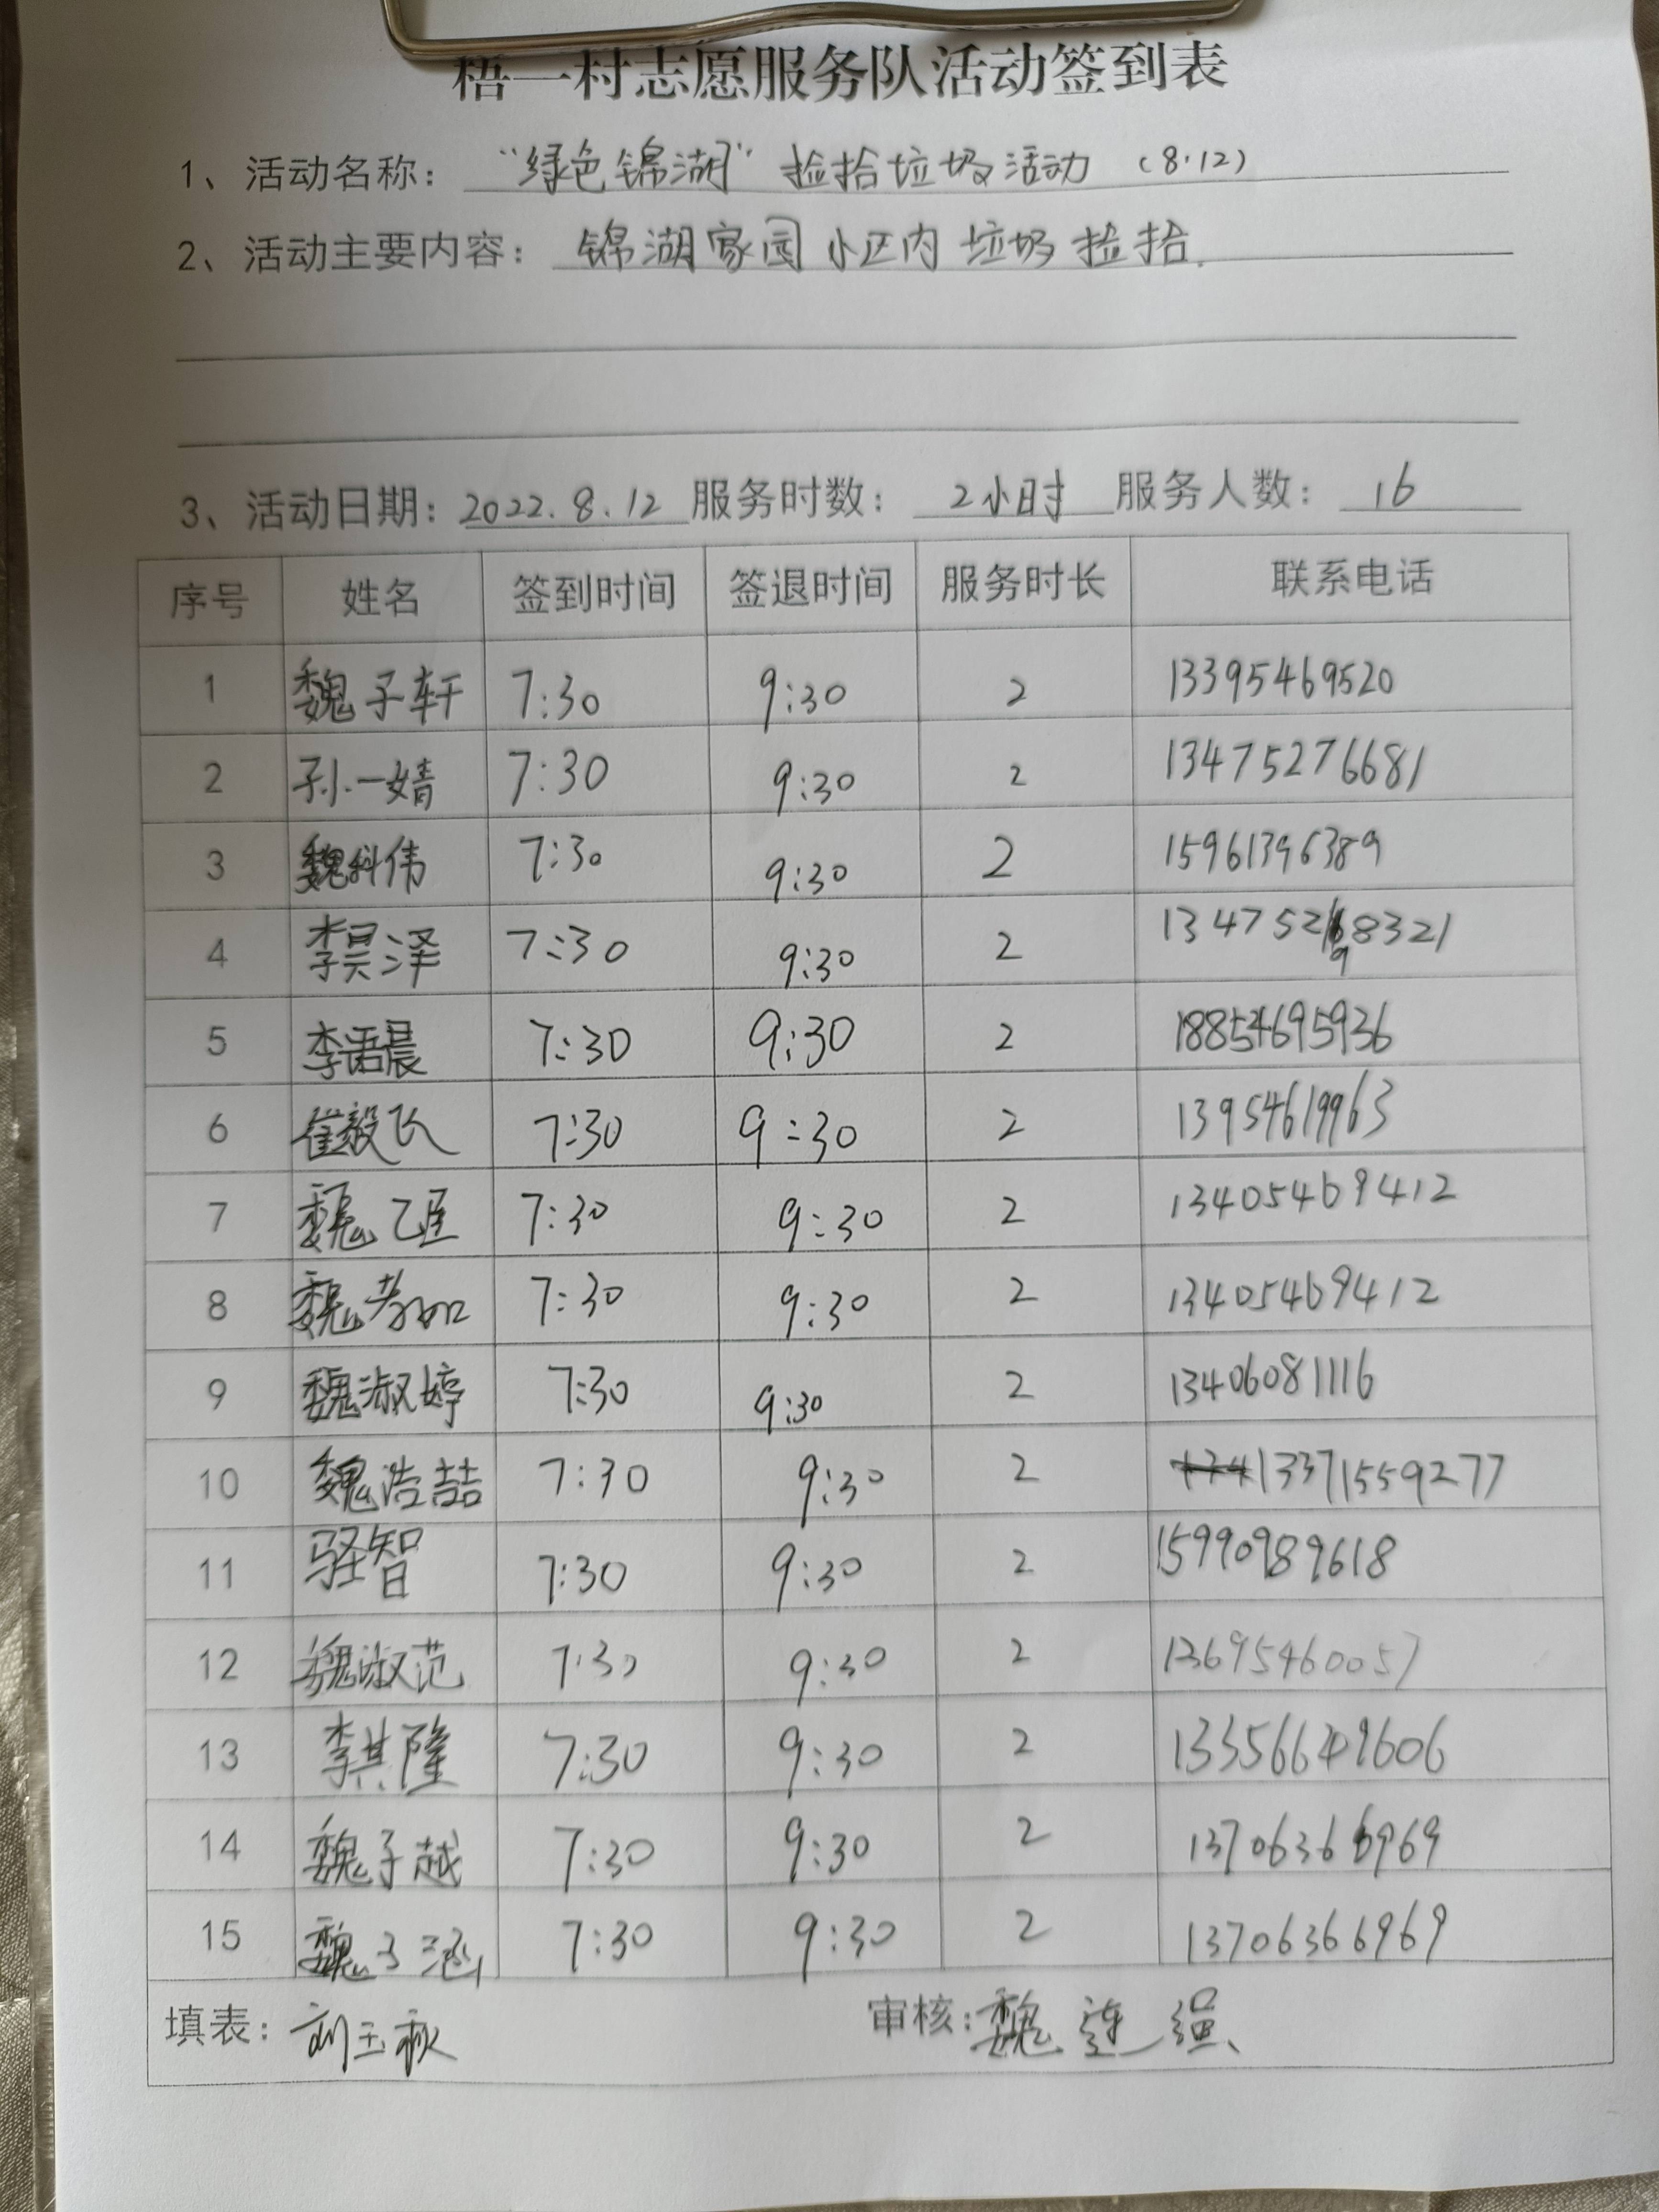 梧一村志愿服务队活动签到表
1、活动名称：“绿色锦湖”捡拾垃圾活动（8.12）
2、活动主要内容：锦湖家园小区内垃圾捡拾.
3、活动日期：2022.8.12 服务时数：2小时 服务人数：16
序号 姓名 签到时间 签退时间 服务时长 联系电话
1 魏子轩 7:30 9:30 2 13395469520
2 孙一婧 7:30 9:30 2 13475276681
3 魏科伟 7:30 9:30 2 15961396389
4 李昊泽 7:30 9:30 2
5 李语晨 7:30 9:30 2 18854695936
6 崔毅飞 7:30 9:30 2 13954619963
7 魏 7:30 9:30 2 13405469412
8 魏 7:30 9:30 2 13405469412
9 魏淑婷 7:30 9:30 2 13406081116
10 魏浩喆 7:30 9:30 2 13371559277
11 7:30 9:30 2 15990989618
12 魏淑范 7:30 9:30 2 13695460057
13 李其隆 7:30 9:30 2 13356649606
14 魏子越 7:30 9:30 2 13706366969
15 魏子涵 7:30 9:30 2 13706366969
填表：刘玉秋 审核：魏莲强